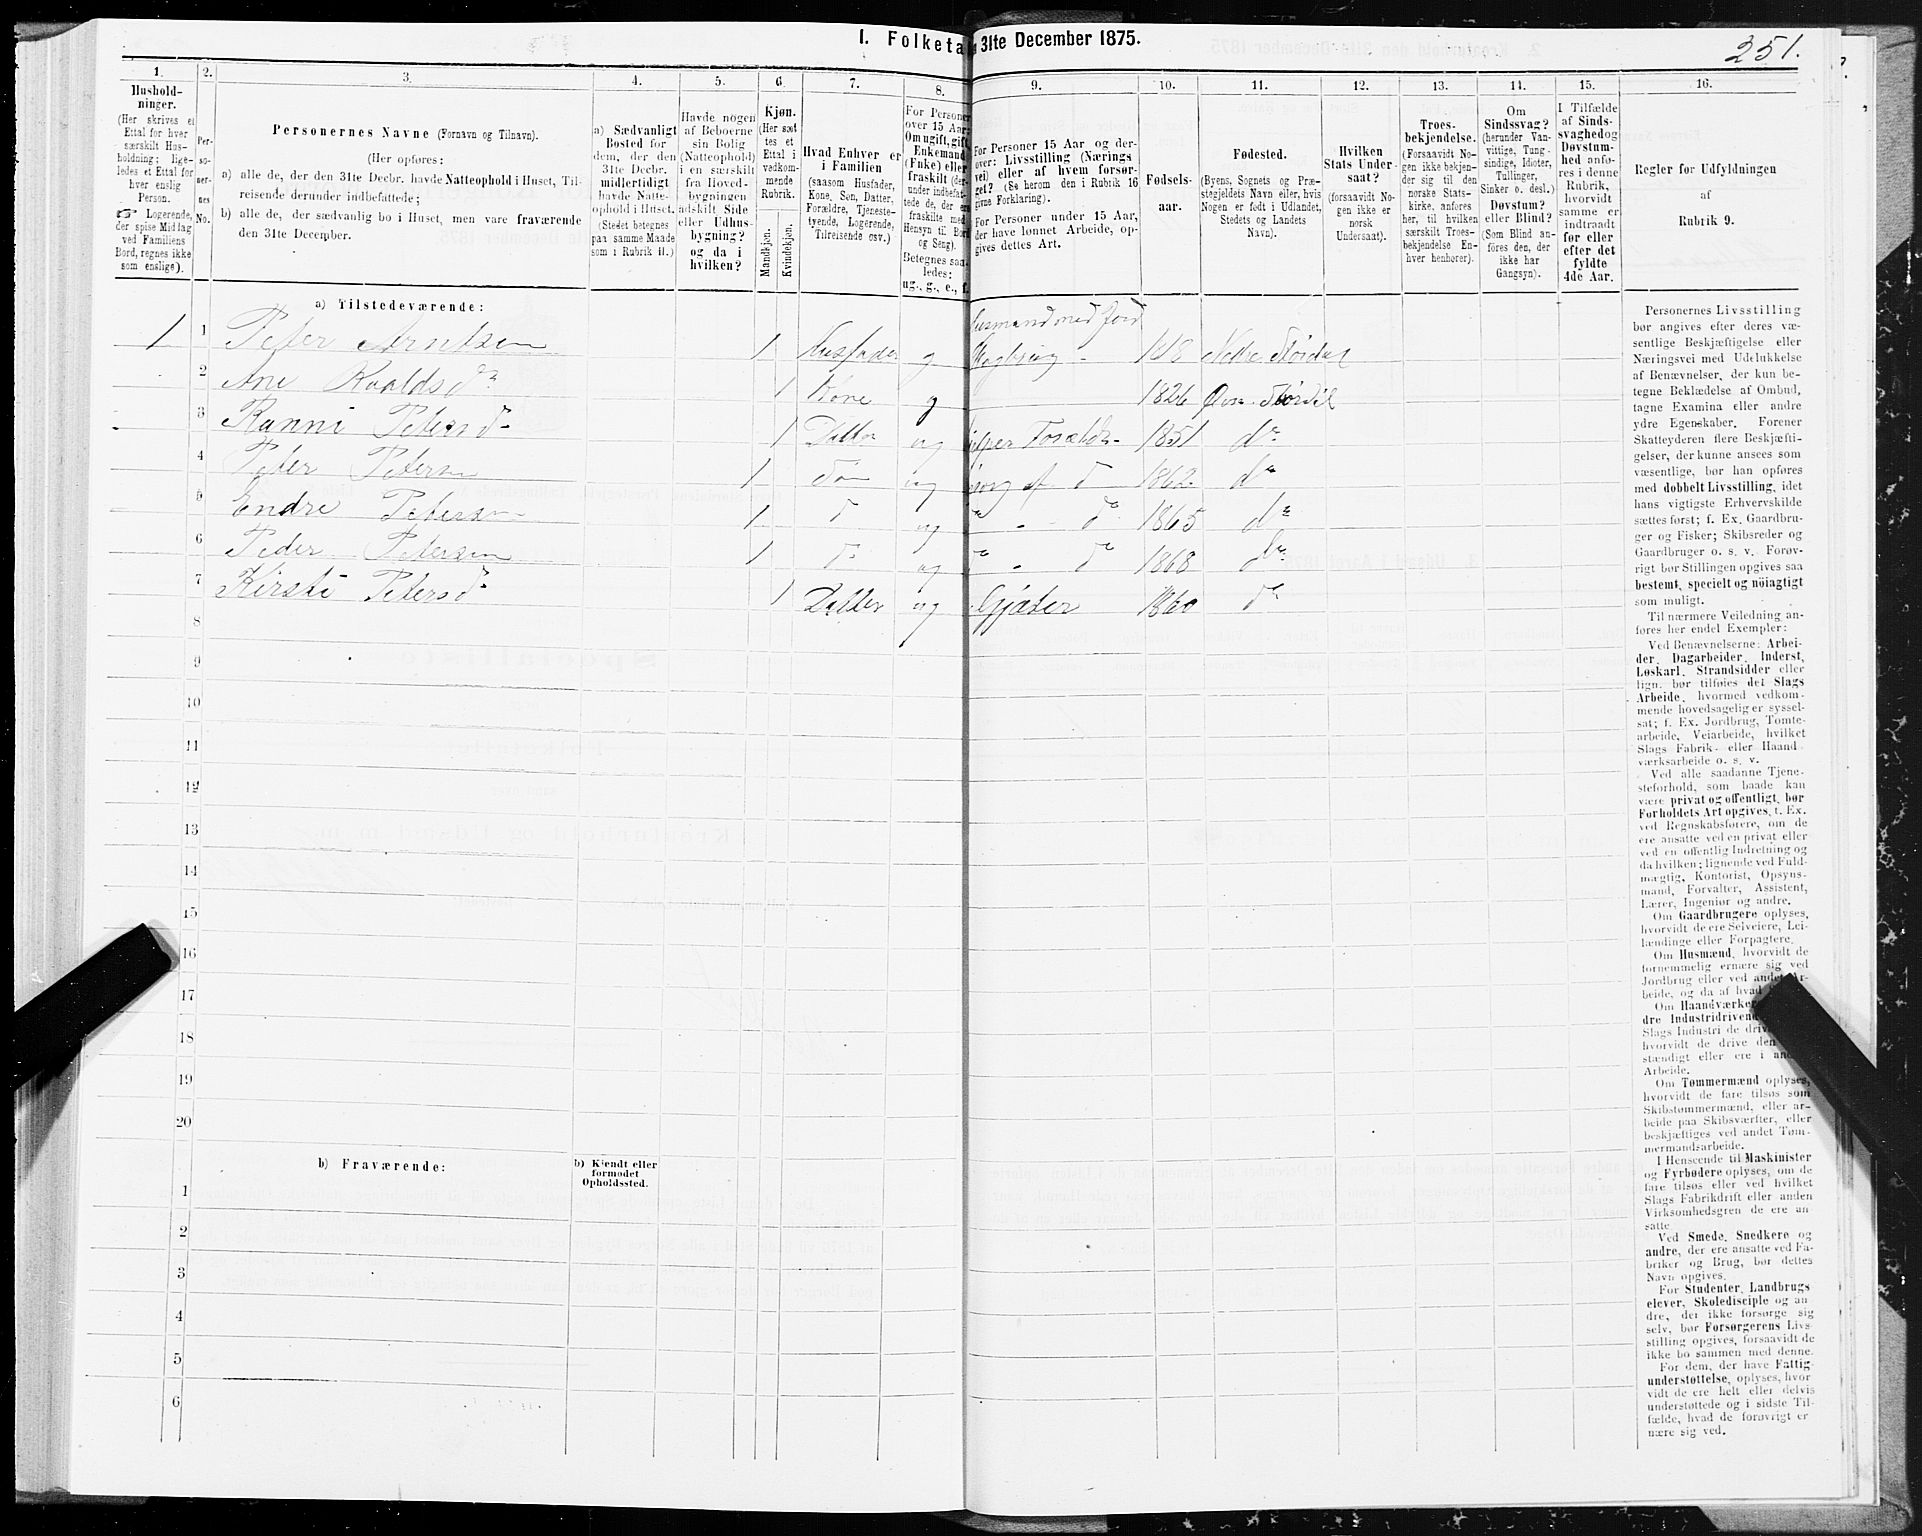 I. Folketa 31te December 1875.
251.
1. 2. 3. 4. 5. 6. 7. 8. 9. 10. 11. 12. 13. 14. 15. 16.
Hushold-
ninger.
(Her skrives et
Ettal for hver
særskilt Hus-
holdning; lige-
ledes et Ettal for
hver enslig
Person.
☞ Logerende,
der spise Middag
ved Familiens
Bord, regnes ikke
som enslige).
Per-
so-
ner-
nes
No.
Personernes Navne (Fornavn og Tilnavn).
(Her opføres:
a) alle de, der den 31te Decbr. havde Natteophold i Huset, Til-
reisende derunder indbefattede;
b) alle de, der sædvanlig bo i Huset, men vare fraværende
den 31te December.
a) Sædvanligt
Bosted for
dem, der den
31te Decbr.
midlertidigt
havde Natte-
ophold i Huset.
(Stedet betegnes
paa samme Maade
som i Rubrik 11.)
Havde nogen
af Beboerne
sin Bolig
(Natteophold)
i en særskilt
fra Hoved-
bygningen
adskilt Side
eller Udhus-
bygning?
og da i
hvilken?
Kjøn.
(Her sæt
tes et
Ettal i
vedkom-
mende
Rubrik.
Mandkjøn.
Kvindekjøn.
Hvad Enhver er
i Familien
(saasom Husfader,
Kone, Søn, Datter,
Forældre, Tjeneste-
tyende, Logerende,
Tilreisende osv.)
For Personer
over 15 Aar:
Om ugift, gift,
Enkemand
(Enke) eller
fraskilt (der-
under indbefat-
tede de, der ere
fraskilte med
Hensyn til Bord
og Seng).
Betegnes saa-
ledes:
ug., g., e., f.
For Personer 15 Aar og der-
over: Livsstilling (Nærings
vei) eller af hvem forsør-
get? (Se herom den i Rubrik 16
givne Forklaring).
For Personer under 15 Aar,
der have lønnet Arbeide, op-
gives dettes Art.
Fødsels-
aar.
Fødested.
(Byens, Sognets og Præ-
stegjeldets Navn eller, hvis
Nogen er født i Udlandet,
Stedets og Landets
Navn).
Hvilken
Stats Under-
saat?
(forsaavidt No-
gen ikke er
norsk
Undersaat).
Troes-
bekjendelse.
(Forsaavidt No-
gen ikke bekjen-
der sig til den
norske Stats-
kirke, anføres
her, til hvilken
særskilt Troes-
bekjendelse En-
hver henhører).
Om
Sindssvag?
(herunder Van-
vittige, Tung-
sindige, Idioter,
Tullinger,
Sinker o. desl.)
Døvstum?
eller Blind?
(Som Blind an-
føres den, der
ikke har
Gangsyn).
I Tilfælde
af Sinds-
svaghed og
Døvstum-
hed anfø-
res i denne
Rubrik,
hvorvidt
samme er
indtraadt
før eller
efter det
fyldte
4de Aar.
Regler for Udfyldningen
af
Rubrik 9.
a) Tilstedeværende:
1 1 Peter Arntsen 1 Husfader g Husmand med Jord
2 Ane Roaldsdr 1 Kone g 1826
3 Ranni Petersd 1 Datter ug 1851 do
4 Peter Petersen 1 Søn ug 1862 do
5 Endre Petersen 1 d ug 1865 do
6 Peder Petersen 1 do ug 1868 do
7 Kirsti Petersd 1 Datter ug Gjæter 1860 do
8
9
10
11
12
13
14
15
16
17
18
19
20
b) Fraværende:
b) Kjendt eller
formodet
Opholdssted.
1
2
3
4
5
6
Personernes Livsstilling
bør angives efter deres væ-
sentlige Beskjæftigelse eller
Næringsvei med Udelukkelse
af Benævnelser, der kun be-
tegne Beklædelse af Ombud,
tagne Examina eller andre
ydre Egenskaber. Forener
Skatteyderen flere Beskjæfti-
gelser, der kunne ansees som
væsentlige, bør han opføres
med dobbelt Livsstilling, idet
hans vigtigste Erhvervskilde
sættes først; f. Ex. Gaardbru-
ger og Fisker; Skibsreder og
Gaardbruger o. s. v. Forøv-
rigt bør Stillingen opgives saa
bestemt, specielt og nøiagtigt
som muligt.
Til nærmere Veiledning an-
føres her endel Exempler:
Ved Benævnelserne: Arbei-
der, Dagarbeider, Inderst,
Løskarl, Strandsidder eller
lign. bør tilføies det Slags
Arbeide, hvormed vedkom-
mende hovedsagelig er syssel-
sat; f. Ex. Jordbrug, Tomte-
arbeide, Veiarbeide, hvilket
Slags Fabrik- eller Haand-
værksarbeide o. s. v.
Ved alle saadanne Tjene-
steforhold, som baade kan
være privat og offentligt, bør
Forholdets Art opgives, t. Ex.
ved Regnskabsførere, om de
ere ansatte ved en privat eller
ved en offentlig Indretning og
da hvilken; lignende ved Fuld-
mægtig, Kontorist, Opsyns-
mand, Forvalter, Assistent,
Lærer, Ingeniør og andre.
Om Gaardbrugere oplyses,
hvorvidt de ere Selveiere, Lei-
lændinge eller Forpagtere.
Om Husmænd, hvorvidt de
fornemmelig ernære sig ved
Jordbrug eller ved andet Ar-
beide, og da af hvad
Om Haandværker
dre Industridrivend
Slags Industri de driv
hvorvidt de drive den
stændigt eller ere i an
Arbeide.
Om Tømmermænd oplyses,
hvorvidt de fare tilsøs som
Skibstømmermænd, eller ar-
beide paa Skibsværfter, eller
beskjæftiges ved andet Tøm-
mermandsarbeide.
I Henseende til Maskinister
og Fyrbødere oplyses, om de
fare tilsøs eller ved hvilket
Slags Fabrikdrift eller anden
Virksomhedsgren de ere an-
satte.
Ved Smede, Snedkere og
andre, der ere ansatte ved Fa-
briker og Brug, bør dettes
Navn opgives.
For Studenter, Landbrugs
elever, Skoledisciple og an-
dre, der ikke forsørge sig
selv, bør Forsørgerens Livs-
stilling opgives, forsaavidt de
ikke bo sammen med denne.
For dem, der have Fattig-
understøttelse, oplyses, hvor
vidt de ere helt eller delvis
understøttede og i sidste Til-
fælde, hvad de forøvrigt er
nære sig ved.